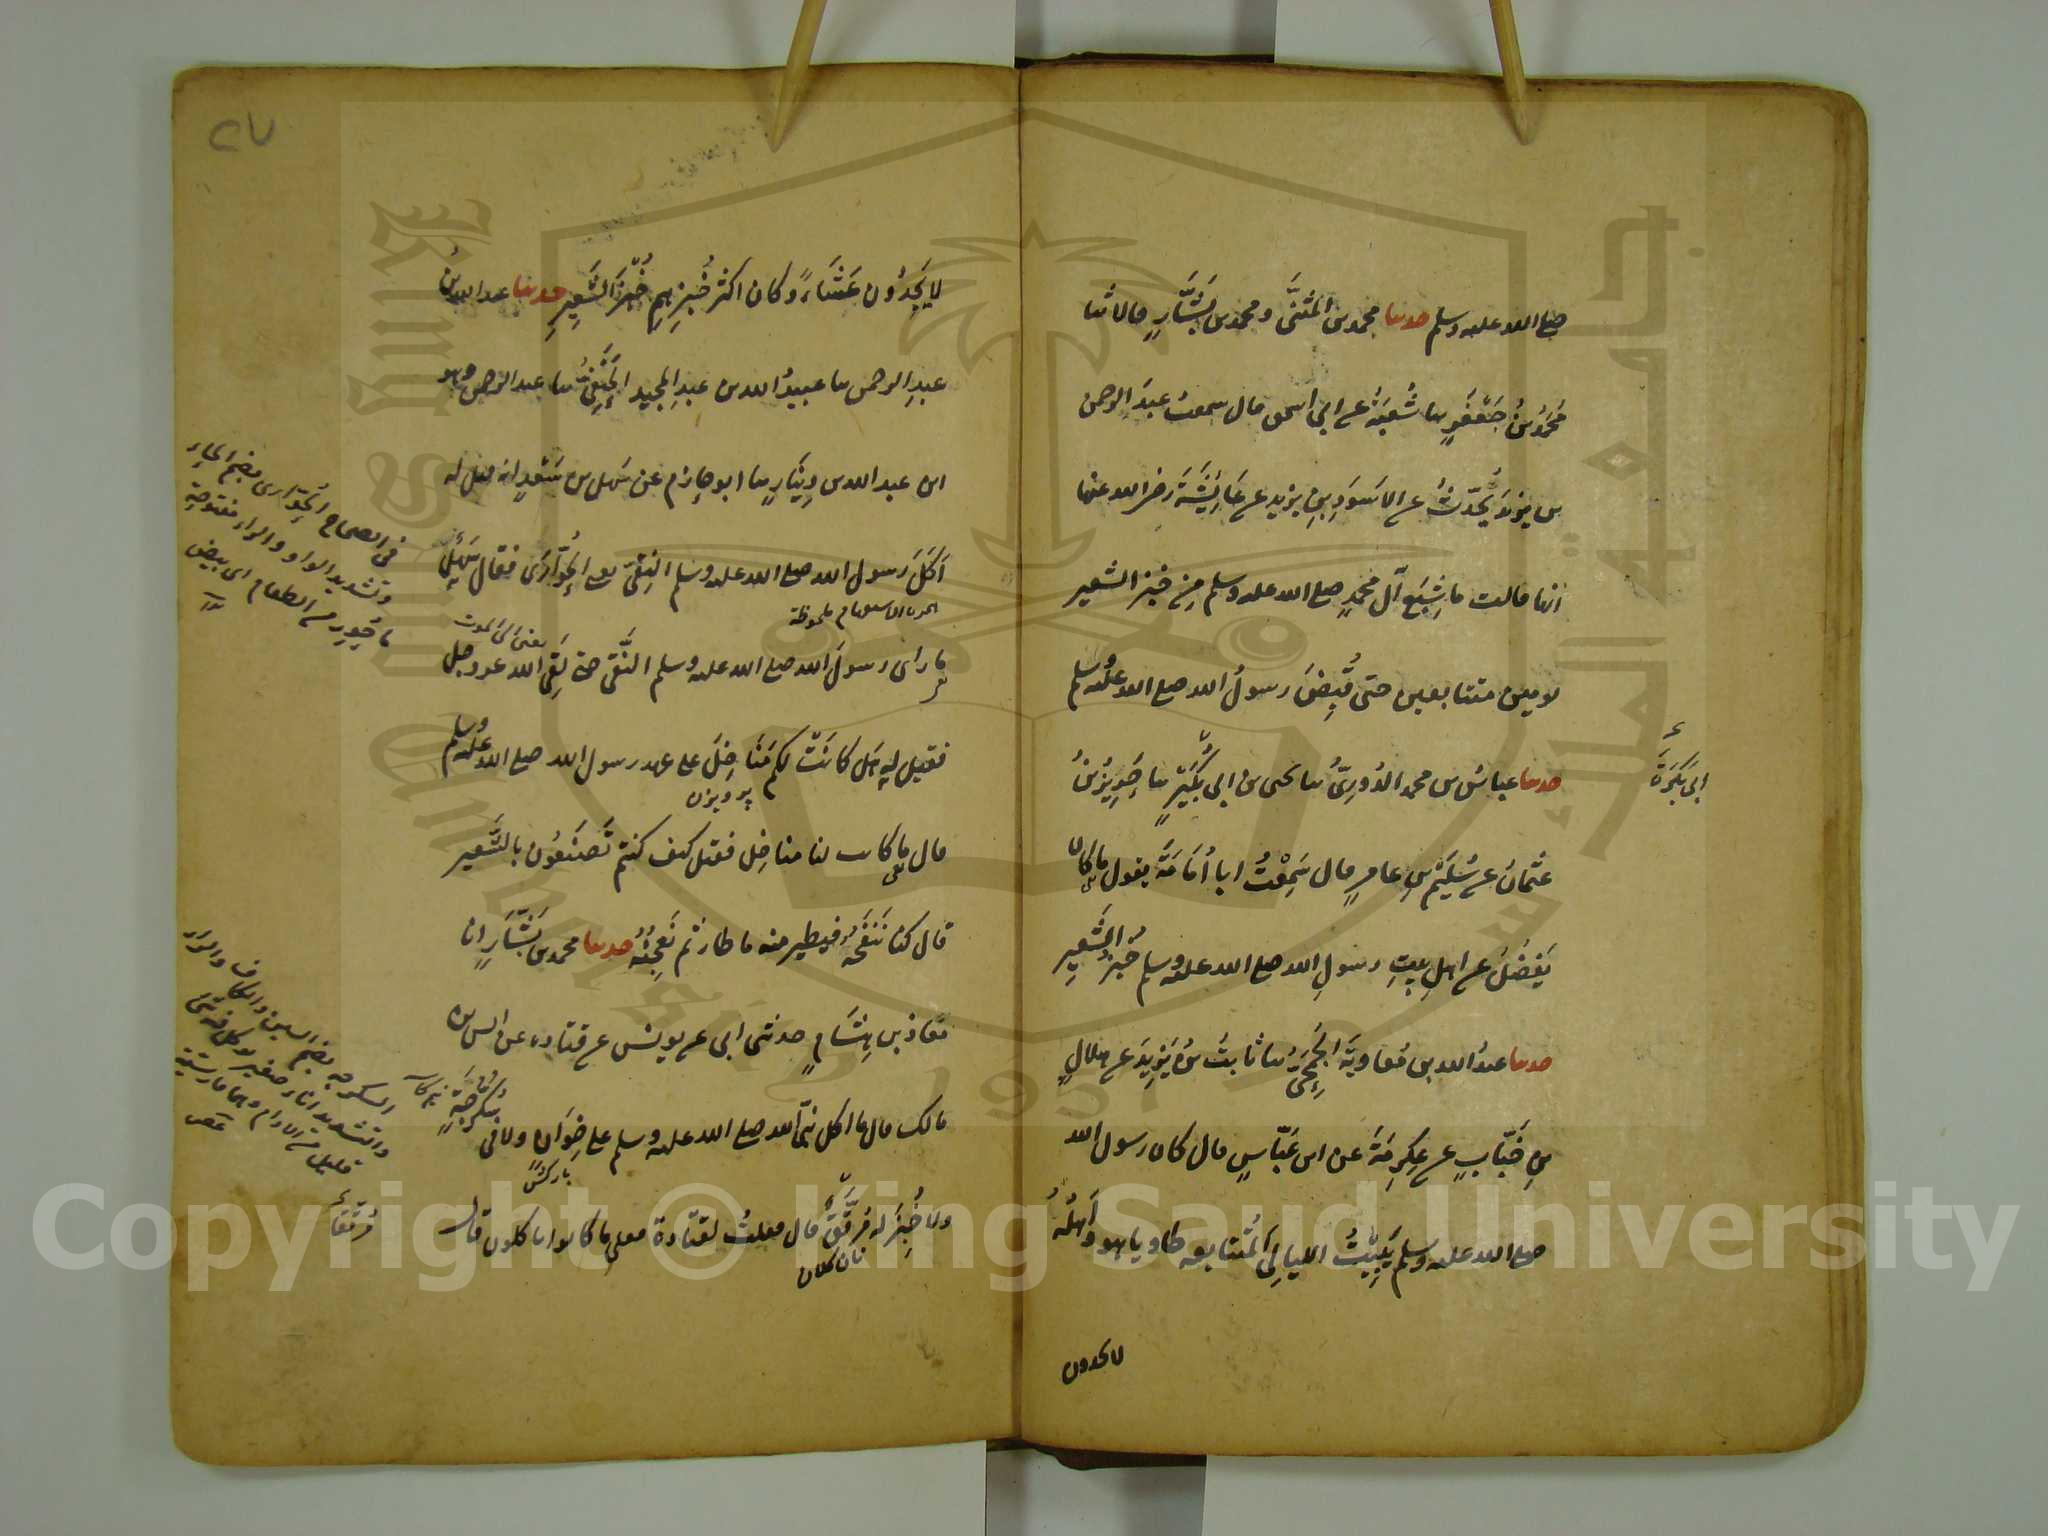 صلى الله عليه وسلم حدثنا محمد بن المُثنَّى ومحمد بن بَشَّارٍ قالا ثنا
مُحَمَّدُ بنُ جَعْفَرٍ ثنا شُعْبَةُ عن ابي اسحق قال سمعتُ عبدَ الرحمن
بن يزيدَ يُحَدِّثُ عن الاَسْوَدِ بنِ يزيد عن عَائِشَةَ رضى الله عنها
انها قالت ما شَبِعَ آل محمدٍ صلى الله عليه وسلم مِن خبز الشعير
يومين متتابعين حتى قُبِضَ رسولُ الله صلى الله عليه وسلم
حدثنا عباسُ بن محمد الدُّورِىُّ ثنا يحيى بن ابي بُكَيْرٍ ثنا حَرِيزُ بنُ
ابى بَكْرَةَ
عُثمانَ عن سُلَيْمِ بنِ عامرٍ قال سَمِعْتُ ابا اُمَامَةَ يقول ما كان
يَفْضُلُ عن اهلِ بيتِ رسولِ الله صلى الله عليه وسلم خُبْزُ الشَّعِيرِ
حدثنا عبدُ الله بن مُعاويَةَ الجُمَحِىُّ ثنا ثابتُ بنُ يَزِيدَ عن هلالِ
بنِ خَبَّابٍ عن عِكْرِمَةَ عن ابن عَبَّاسٍ قال كان رسول الله
صلى الله عليه وسلم يَبِيْتُ الليالِىَ المُتتابعه طاويا هو وَاَهلُهُ
لا يجدون
٢٧
لا يَجِدُون عَشَاءً وكان اكثرُ خُبْزِهِم خُبْزَ الشَّعِيرِ حدثنا عبد الله بنُ
عبدِ الرحمن ثنا عبيدُ الله بن عبدِ المجيد الحَنَفِىُّ ثنا عبد الرحمن وهو
ابن عبد الله بن دِينَارٍ ثنا ابو حازم عن سَهل بن سَعْدٍ انه قيل له
اَكَلَ رسول الله صلى الله عليه وسلم النِقِىَّ يعنى الحُوَّارَى فقال سَهْلٌ
ما رأى رسولُ الله صلى الله عليه وسلم النَّقِى حتى لَقِىَ الله عز وجل
يعنى الى الموت
فقيل له هل كانَتْ لكم مَنَاخِلُ على عهد رسول الله صلى الله عليه وسلم
پرويزن
قال ما كانت لنا مناخل فقيل كيف كنتم تَصنَعُون بالشَّعير
قال كنا نَنفُخُهُ فيطير منه ما طار ثم نَعجِنُهُ حدثنا محمد بن بَشَّارٍ انا
مُعَاذ بن هِشَامٍ حدثنى ابى عن يونس عن قتاده عن انس بن
مالك قال ما اكل نبىُّ الله صلى الله عليه وسلم على خِوَانٍ ولا فى سُكُرُّجَةٍ
ولا خُبِزَ له مُرَقَّقٌ قال فقلتُ لقتادة فعلى ما كانوا ياكلون قال
فى الصحاح الحُوَّارى بضم الحاء
وتشديد الواو والراء مفتوحة
ما حُوِّر من الطعام اى بيض
السكرجه بضم السين والكاف والراء
والتشديد اناء صغير يوكل فيه شئ
قليل من الادام وهى فارسية